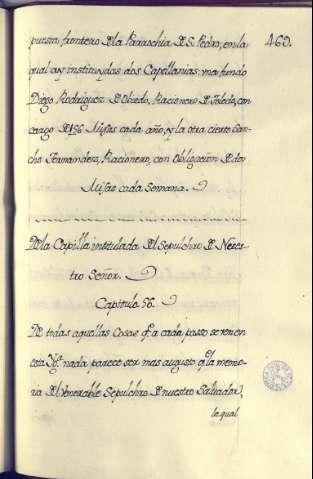 460.
puesta frontero de la Parrochia de S. Pedro, en la
qual ay instituydas dos Capellanias: una fundo
Diego Rodriguez de Obiedo, Racionero de Toledo, con
cargo de 156 Missas cada año, y la otra cierto San-
cho Fernandez, Racionero, con Obligacion de dos
Missas cada semana.
De la Capilla intitulada del Sepulchro de Nues-
tro Señor.
Capitulo 56.
De todas aquellas Cosas q.e a cada passo se ven en
esta Yg.a nada parece ser mas augusto, q.e la memo-
ria del Venerable Sepulchro de nuestro Salvador,
la qual